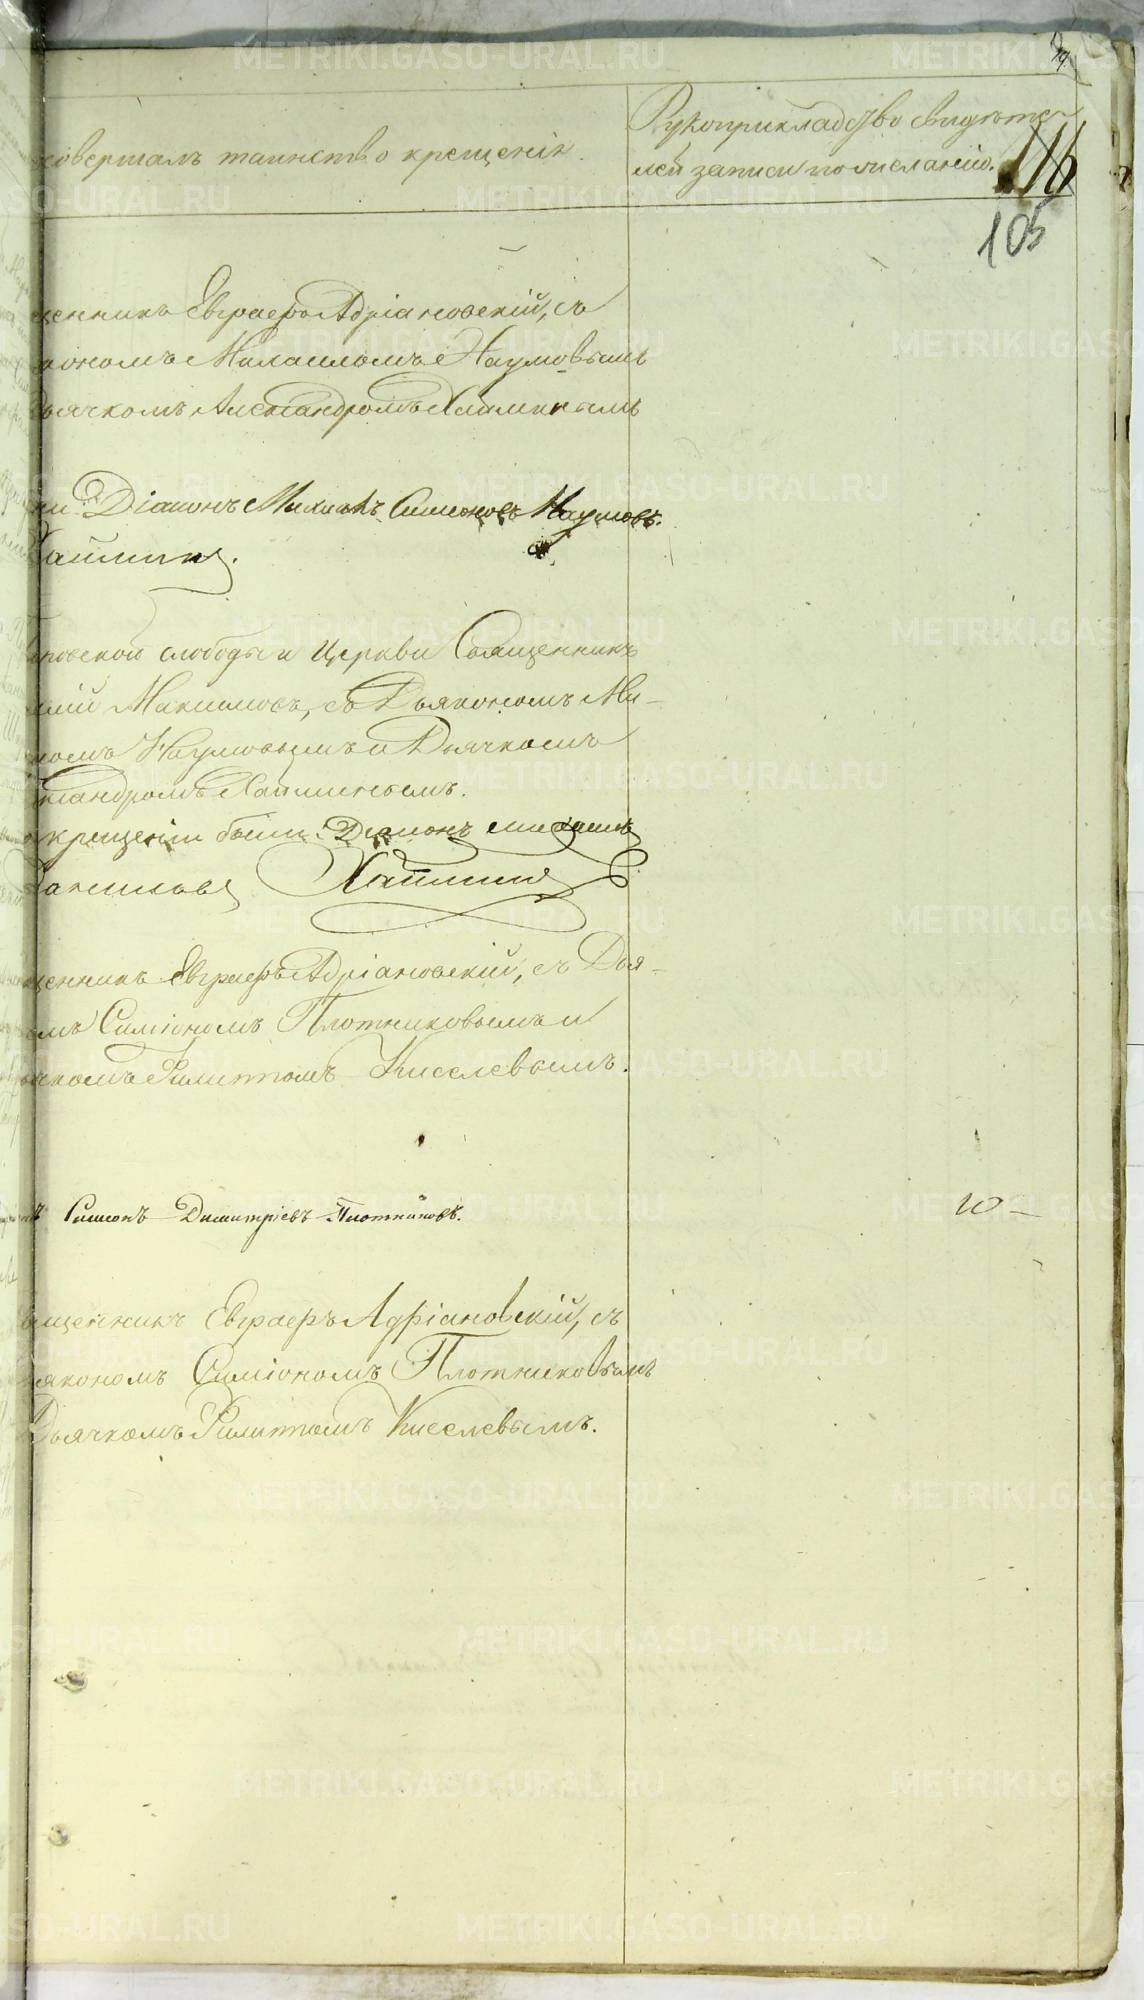 совершалъ таинство крещенія.
Рукоприкладство свидѣте-
лей записи по желанію.
116
105
щенникъ Евграфъ Адріановскій, съ
кономъ Михаиломъ Наумовымъ
Дьячкомъ Александромъ Хайминымъ
ли: Діаконъ Михаилъ Симеоновъ Наумовъ.
Хайминъ.
повской слободы и Церкви Священникъ
Максимовъ, съ Дьякономъ Ми-
ломъ Наумовымъ и Дьячкомъ
ксандромъ Хайминымъ.
крещеніи были: Діаконъ Михаилъ
Хайминъ
щенникъ Евграфъ Адріановскій, съ Дья-
омъ Симіономъ Плотниковымъ и
ячкомъ Филиппомъ Киселевымъ.
нъ Симеонъ Димитріевъ Плотниковъ.
10 —
вященникъ Евграфъ Адріановскій, съ
ьякономъ Симіономъ Плотниковымъ
Дьячкомъ Филиппомъ Киселевымъ.
METRIKI.GASO-URAL.RU